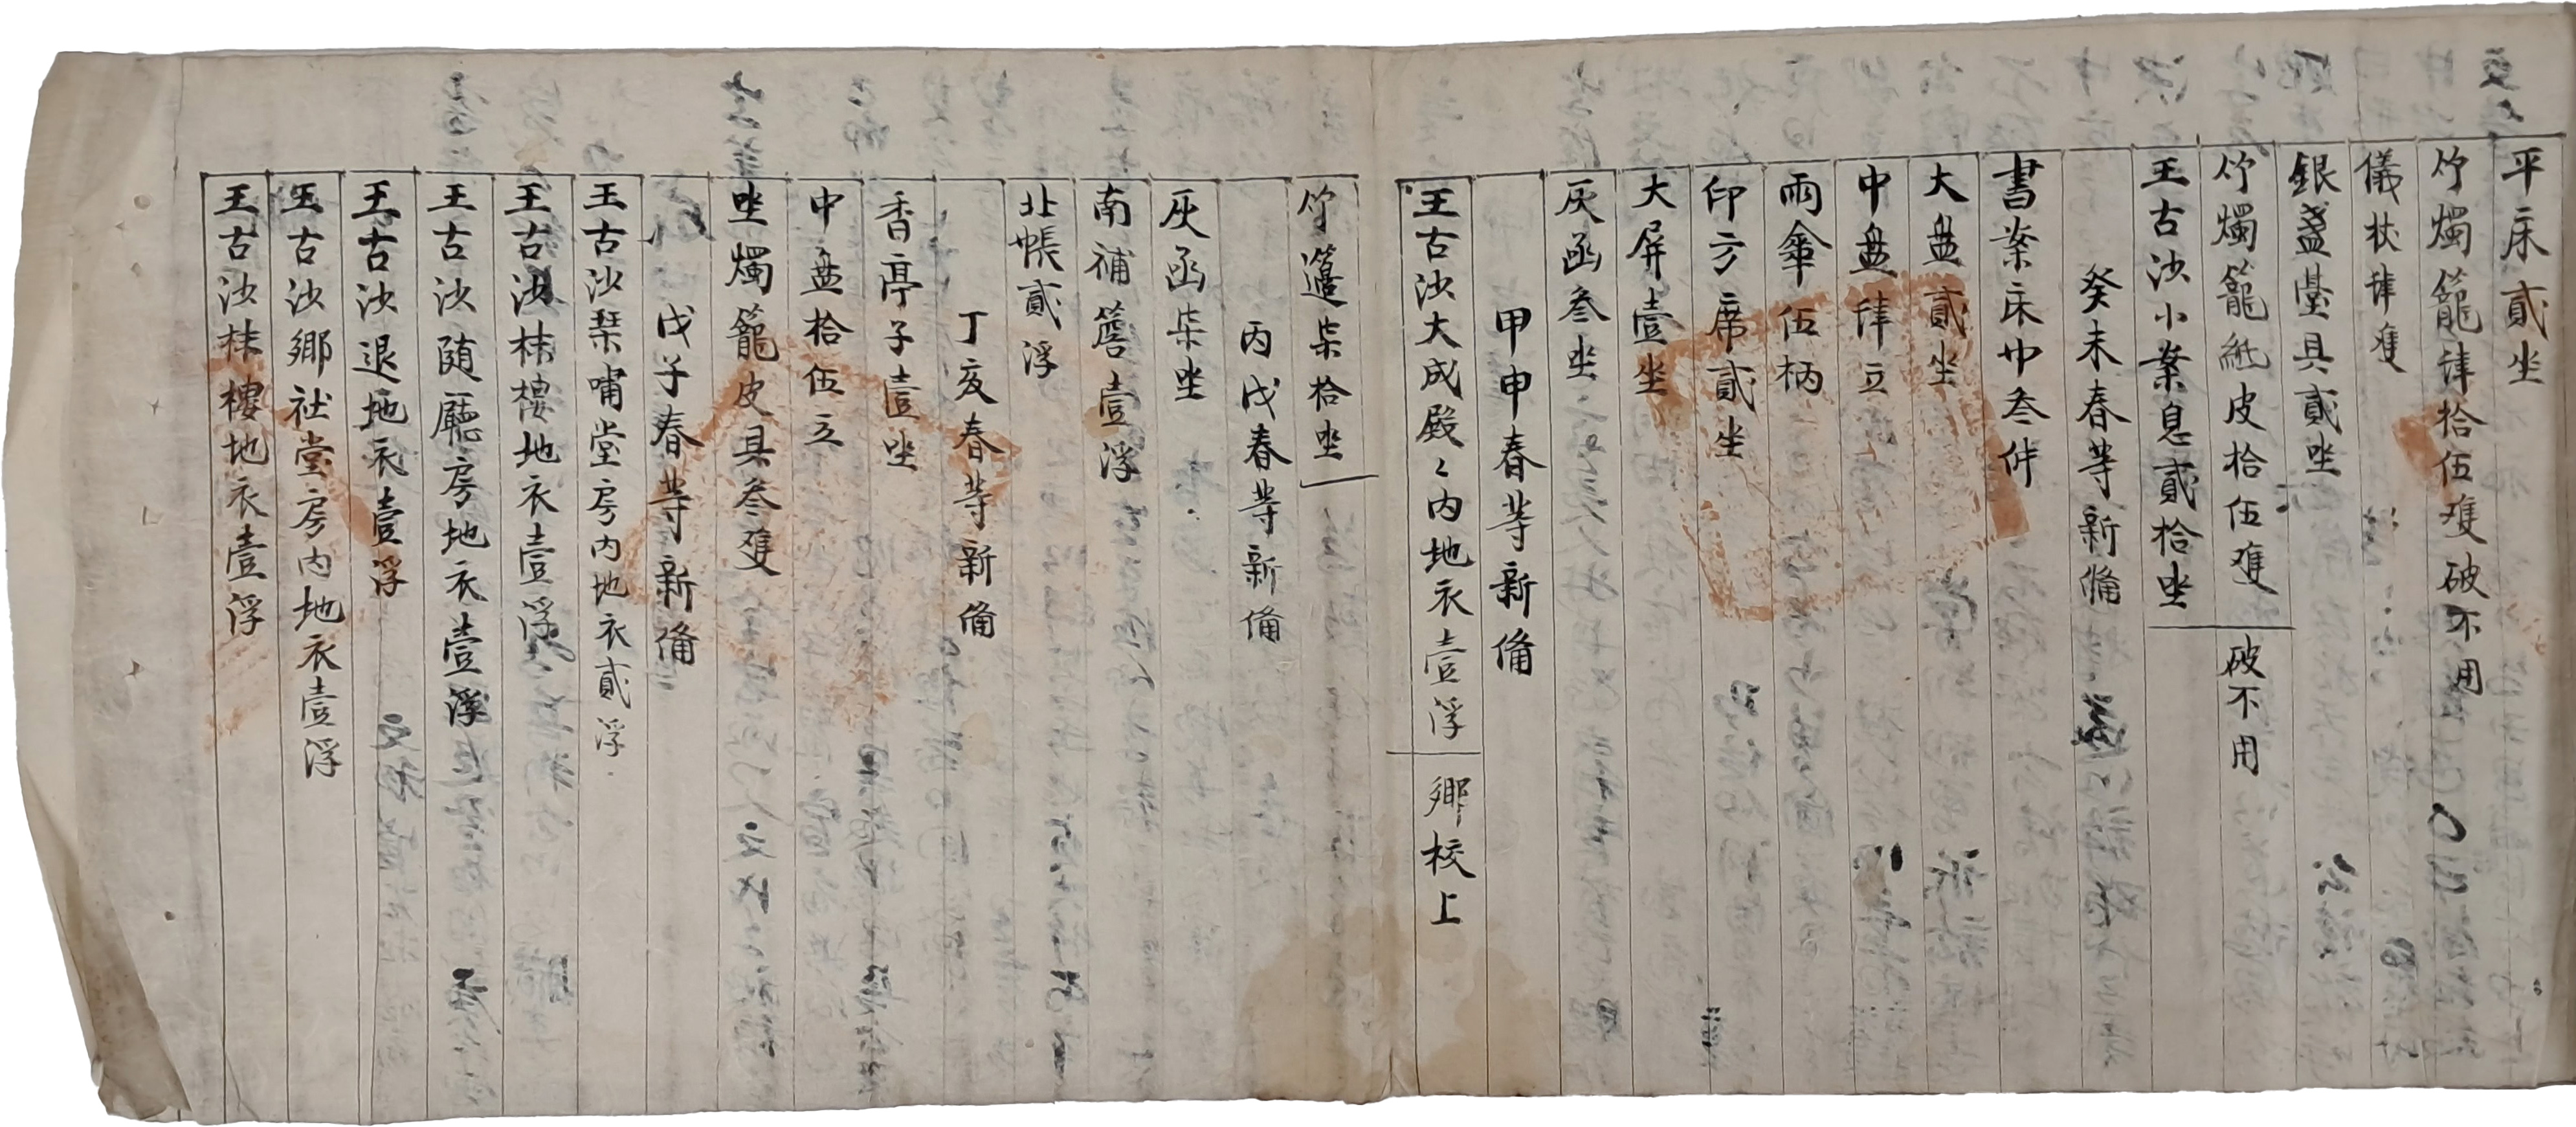 平床貳坐
竹燭籠肆拾伍雙破不用
儀杖肆雙
銀盞臺具貳坐
竹燭籠紙皮拾伍雙 破不用
王古沙小案息貳拾坐
癸未春等新俻
書案床中叁件
大盘貳坐
中盘肆立
雨傘伍柄
印方席貳坐
大屏壹坐
灰函叁坐
甲申春等新俻
王古沙大成殿〻內地衣壹浮 鄉校上
竹籩柒拾坐
丙戌春等新俻
灰函柒坐
南補簷壹浮
北帳貳浮
丁亥春等新俻
香亭子壹坐
中盘拾伍立
坐燭籠皮具叁雙
戊子春等新俻
王古沙琹嘯堂房內地衣貳浮
王古沙樓地衣壹浮
王古沙随廳房地衣壹浮
王古沙退地衣壹浮
王古沙鄉社堂房內地衣壹浮
王古沙樓地衣壹浮